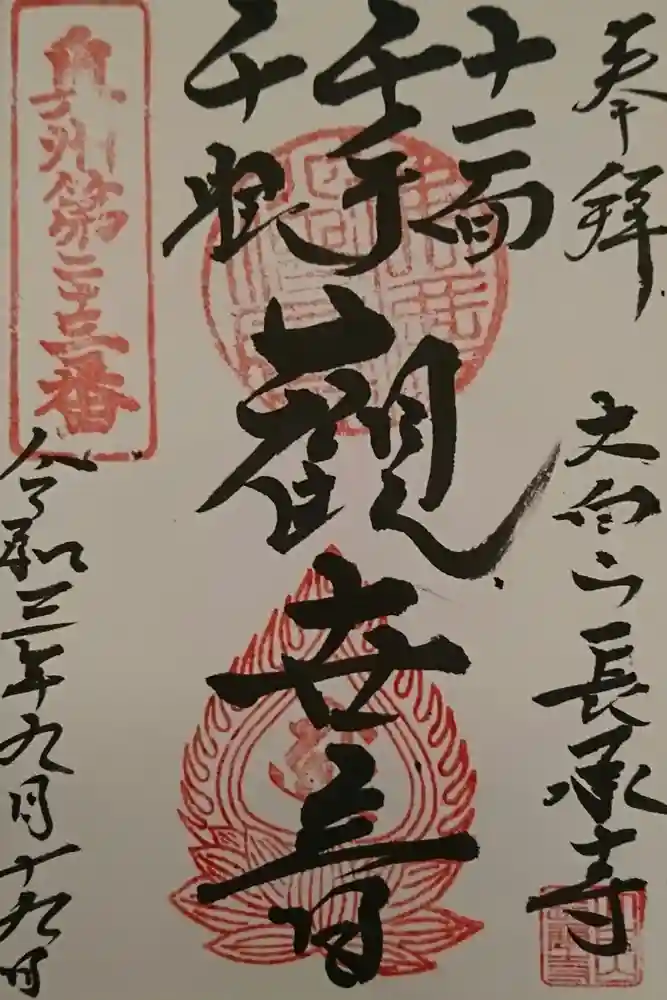 奉拝
大白山長承寺
十一面
千手
千眼
観世音
奥州第二十三番
令和三年九月十九日